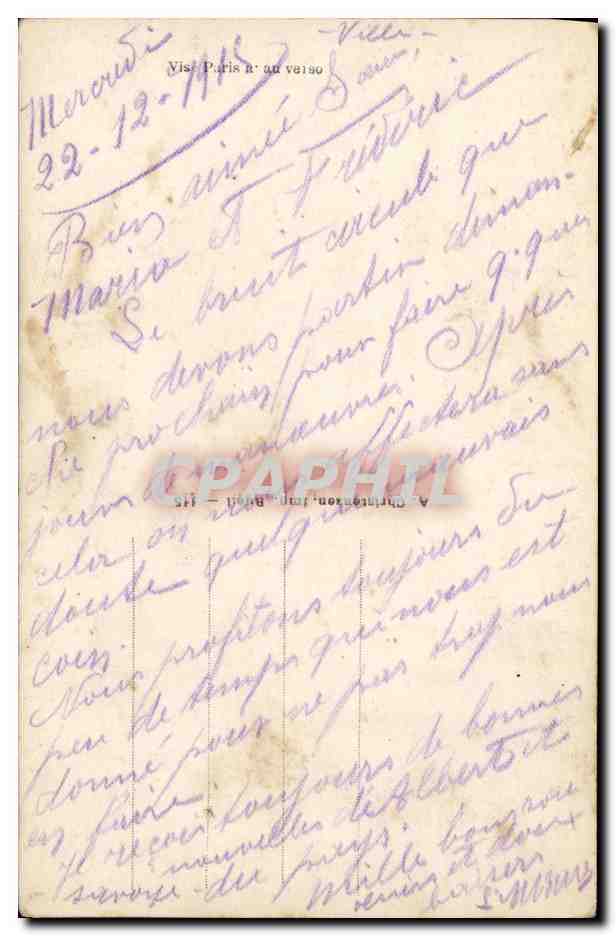 Visé Paris nº au verso
Ville
Mercredi
22-12-1915
Bien aimée Soeur,
Maria et Frédéric
Le bruit circule que
nous devons partir diman-
che prochain pour faire q.ques
jours de manoeuvres. Après
cela on nous affectera sans
doute quelque mauvais
coin.
Nous profitons toujours du
peu de temps qui nous est
donné pour ne pas trop nous
en faire
Je reçois toujours de bonnes
nouvelles de Albert et
savoye du pays.
Mille bons sou
venirs et doux
baisers
A. Christensen, Imp. Rueil — 115
CPARAMA